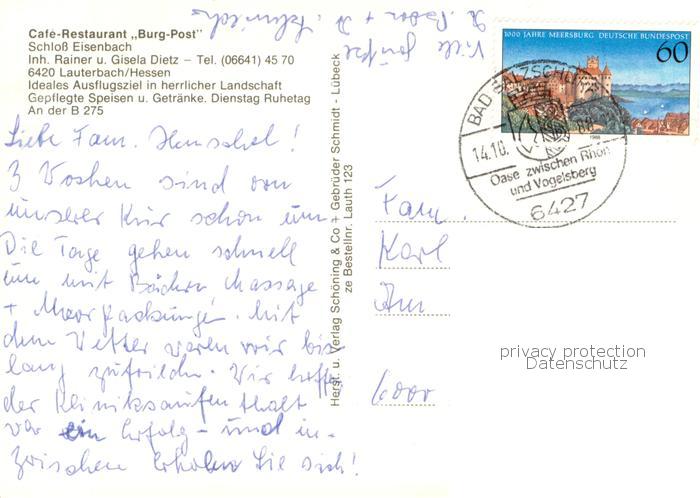 Café-Restaurant „Burg-Post"
Schloß Eisenbach
Inh. Rainer u. Gisela Dietz – Tel. (06641) 45 70
6420 Lauterbach/Hessen
Ideales Ausflugsziel in herrlicher Landschaft
Gepflegte Speisen u. Getränke. Dienstag Ruhetag
An der B 275
Liebe Fam. Henschel!
3 Wochen sind von
unserer Kur schon um
Die Tage gehen schnell
um mit Bäder Massage
+ Moorpackungen. Mit
dem Wetter waren wir bis
lang zufrieden. Wir hoffen
der Kliniksaufenthalt
war ein Erfolg – und in-
zwischen erholen Sie sich!
Viele Grüße
Herst. u. Verlag Schöning & Co + Gebrüder Schmidt - Lübeck
ze Bestellnr. Lauth 123
1000 JAHRE MEERSBURG DEUTSCHE BUNDESPOST
60
1988
BAD SALZSCHLIRF
14.10.
88
Oase zwischen Rhön
und Vogelsberg
6427
Fam.
Karl
Am
6000
privacy protection
Datenschutz